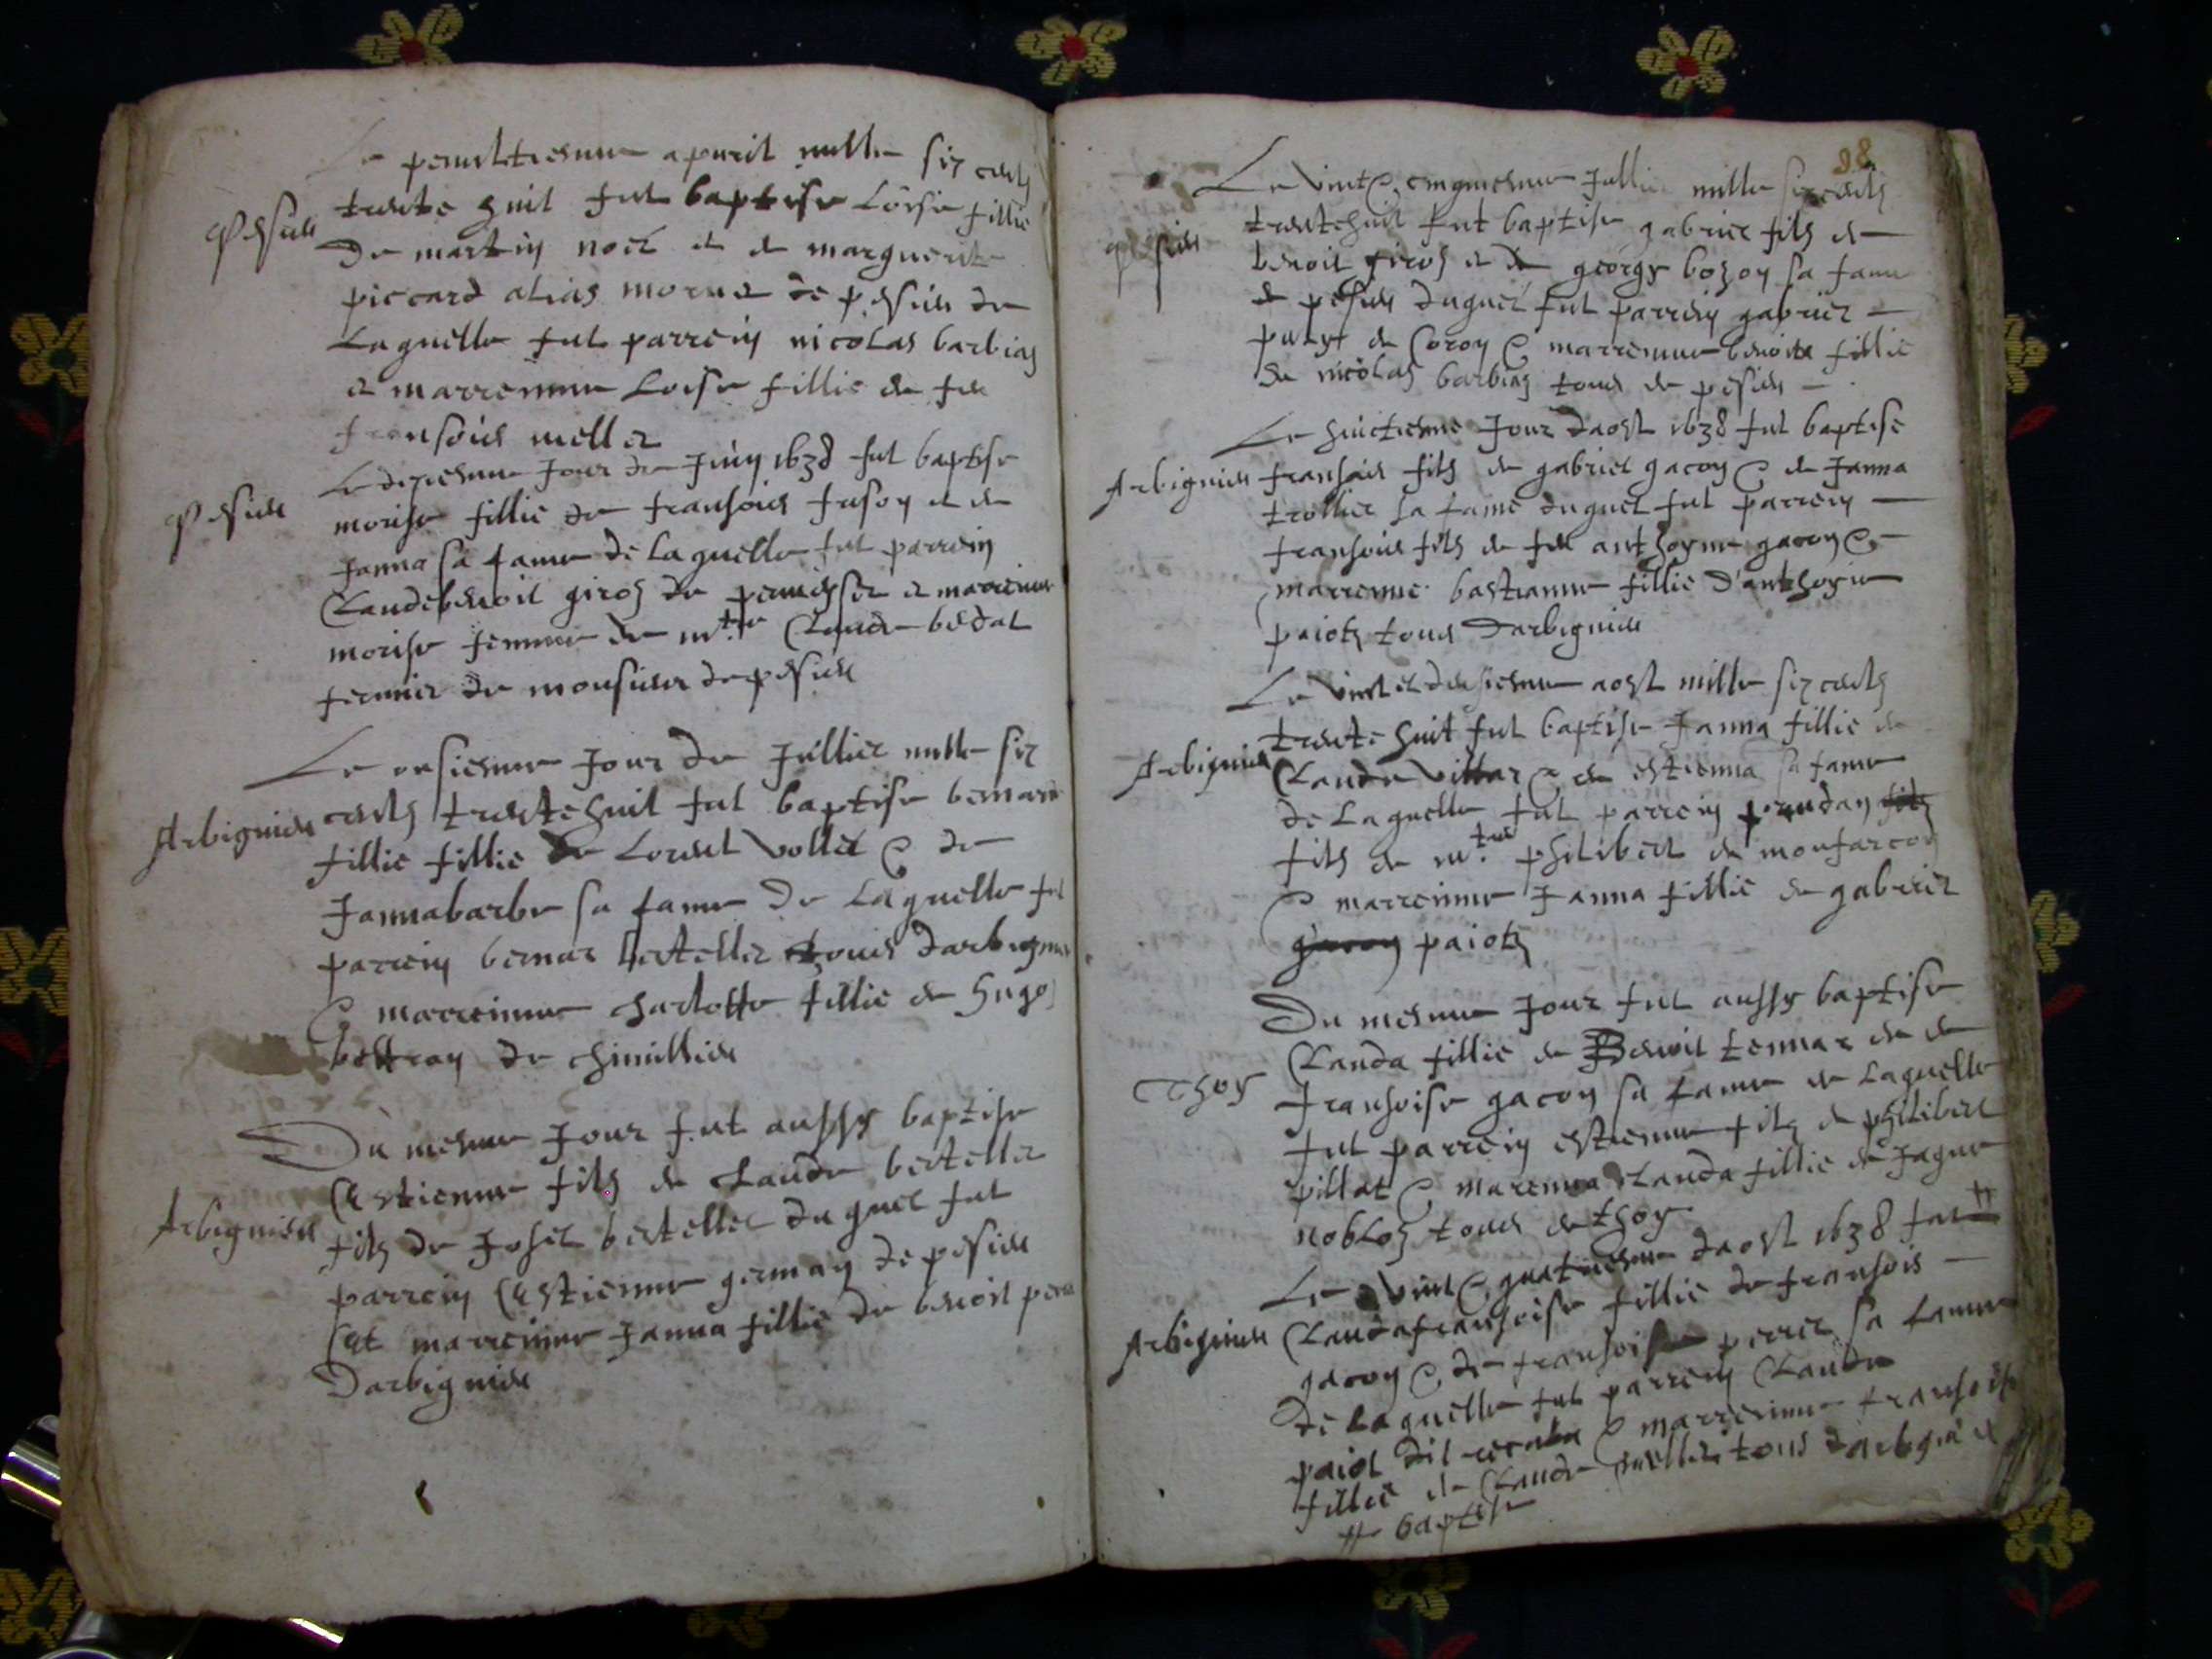 Le penultiesme apvril mille six cents
Pesieu
trente huit fut baptise Loise fillie
De martin noel et de marguerite
piccard alias mornet de pesieu de
Laquelle fut parrein nicolas barbin
et marreinne Loise fillie de feu
fransois mellet
Pesieu
Le dixiesme Jour de Juin 1638 fut baptise
morise fillie de fransois fuson et de
Janna sa fame de Laquelle fut parrein
Claude benoit giros de et marreinne
morise femme de mtre Claude bedat
fermier de monsieur de pesieu
Le onsiesme Jour de Jullier mille six
Arbignieu
cents trentehuit fut baptise bernarde
fillie fillie de Lorent vollet & de
Jannabarbe sa fame De Laquelle fut
parrein bernar bertellet tous darbignieu
& marreinne charlotte fillie de hugo
bettran de chimillieu
Du mesme Jour fut aussy baptise
Estienne fils de claude bertellet
Arbignieu
fils de Josel bertellet duquel fut
parrein Estienne german de pesieu
Et marreinne Janna fillie de benoit
Darbignieu
98
Le vint & cinquiesme Jullie mille six cents
Pesieu
trentehuit fut baptise gabriel fils de
benoit giros et de george bozon sa fame
de pesieu duquel fut parrein gabriel
de Coron & marreinne benoite fillie
de nicolas barbin tous de pesieu
Le huictiesme Jour daost 1638 fut baptise
Arbignieu
fransois fils de gabriel gacon & de Janna
trollier sa fame duquel fut parrein
fransois fils de feu anthoyne gacon &
marrenne bastianne fillie d'anthoyne
paiots tous Darbignieu
Le vint et deusiesme aost mille six cents
trente huit fut baptise Janna fillie de
Arbignieu
Claude villar & de estienna sa fame
de Laquelle fut parrein prudan fils
fils de mtre philibert de monfarcon
& marreinne Janna fillie de gabriel
gacon paiots
Du mesme Jour fut aussy baptise
Clauda fillie de Benoit tennar de de
Thoy
fransoise gacon sa fame de Laquelle
fut parrein estienne fils de philibert
pillat & marenna clauda fillie de Jaque
noblos tous de thoy
Le vint & quatriesme daost 1638 fut #
Arbignieu
Claudafransoise fillie de fransois
gacon & de fransoise perret sa fame
de Laquelle fut parrein Claude
paiot dit & marreinne fransoise
fillie de Claude mellet tous darbignieu
# baptise